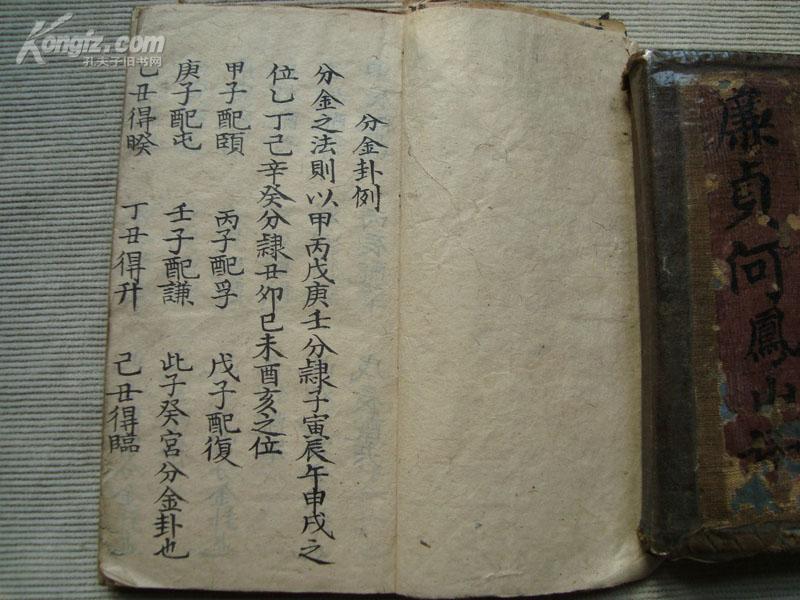 分金卦例
分金之法則以甲丙戊庚壬分隷子寅辰午申戌之
位乙丁己辛癸分隷丑卯巳未酉亥之位
甲子配頤 丙子配孚 戊子配復
庚子配屯 壬子配謙 此子癸宮分金卦也
乙丑得睽 丁丑得升 己丑得臨
廉貞何鳳山
Kongfz.com
孔夫子旧书网